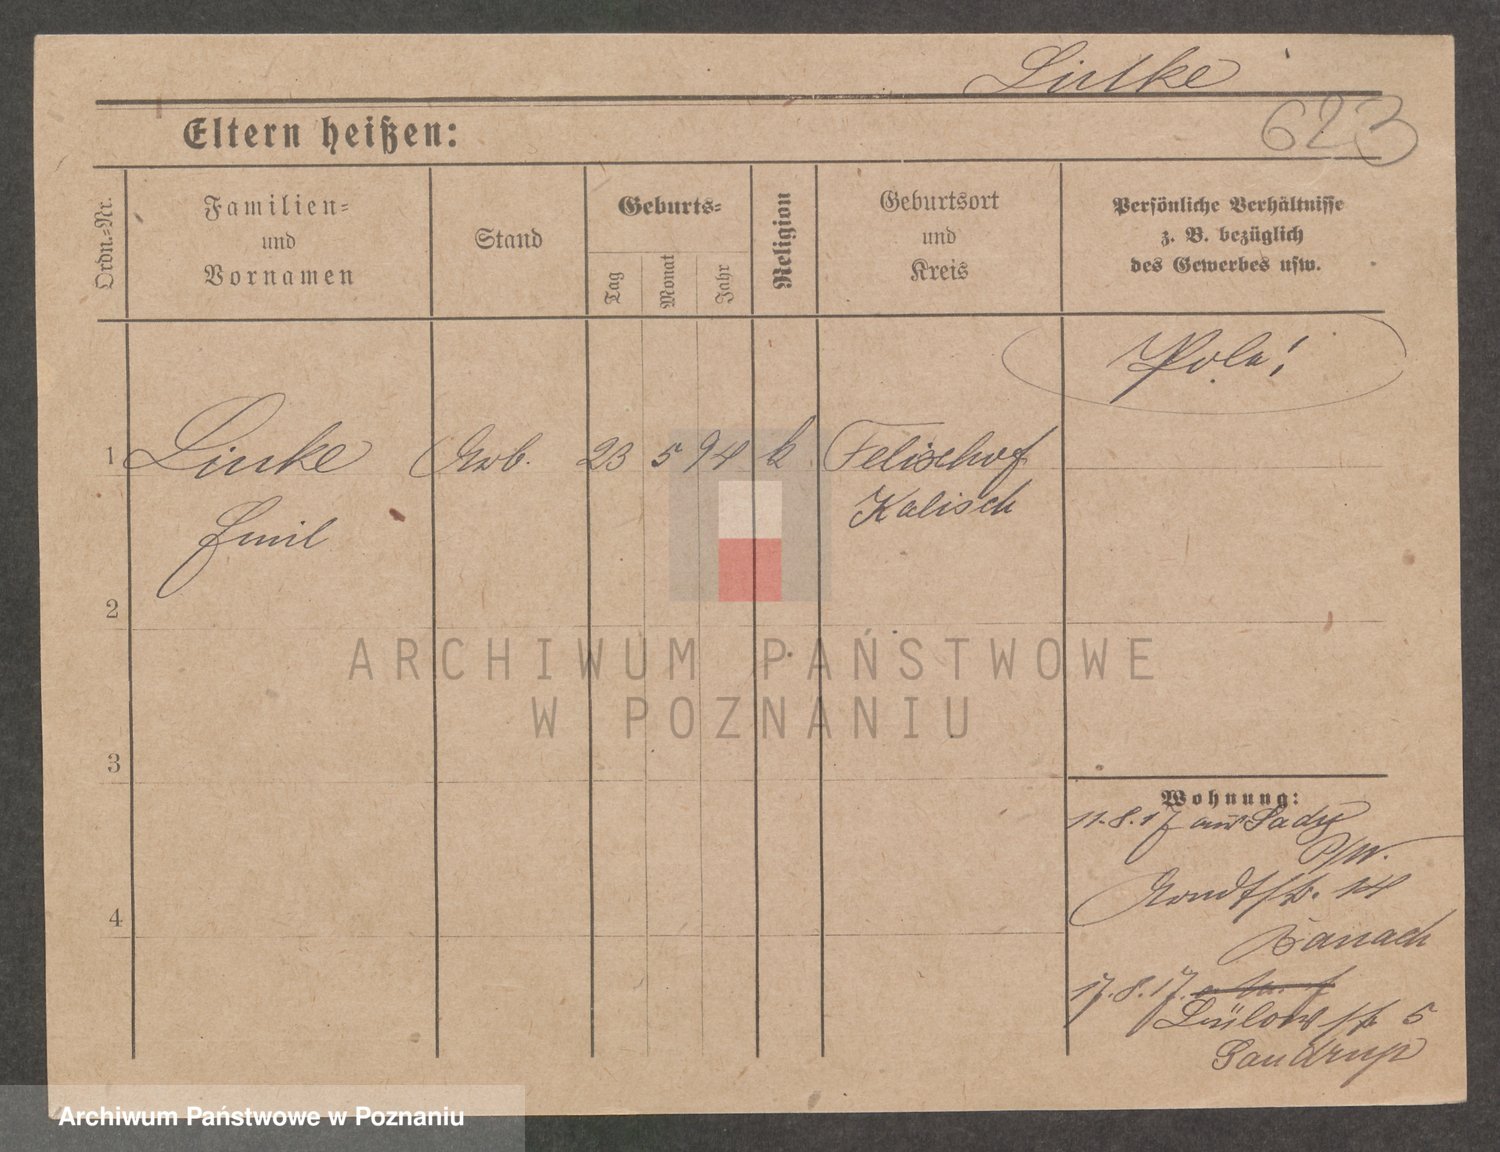 Linke
623
Eltern heißen:
Ordn.-Nr.
Familien-
und
Vornamen
Stand
Geburts-
Tag
Monat
Jahr
Religion
Geburtsort
und
Kreis
Persönliche Verhältnisse
z. B. bezüglich
des Gewerbes usw.
Pole!
1 Linke Arb. 23 5 94 k Felischhof
Emil Kalisch
2
3
4
Wohnung:
11.8.17 aus Sady
P/W.
Arndtstr. 14
Banach
17.8.17.
Bülowstr 5
ARCHIWUM PAŃSTWOWE
W POZNANIU
Archiwum Państwowe w Poznaniu